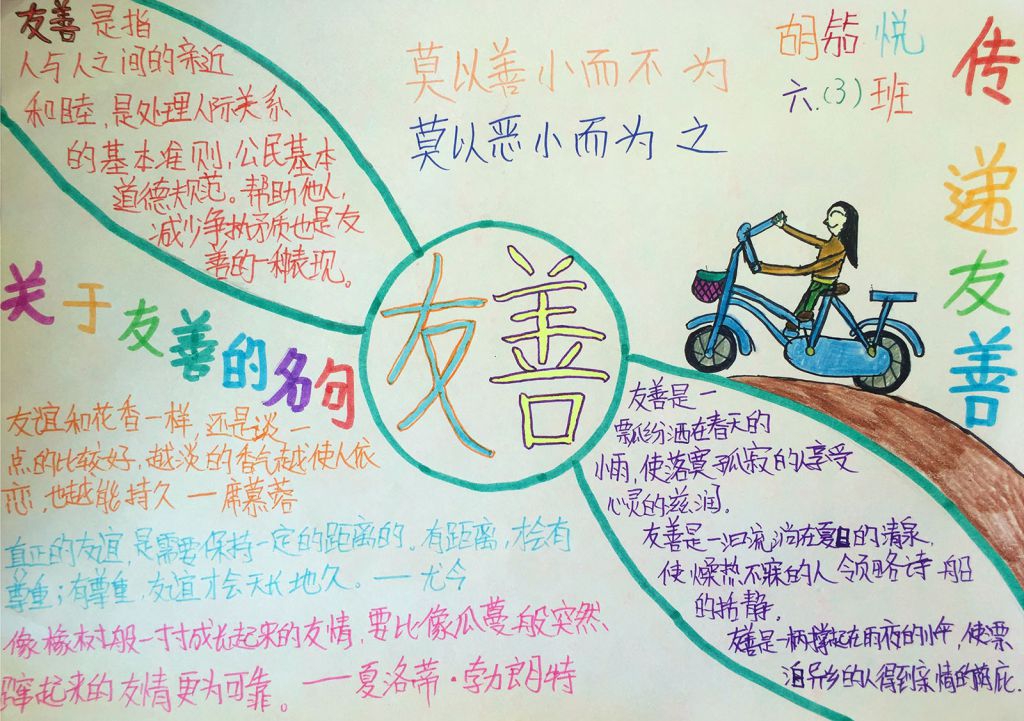 友善是指
人与人之间的亲近
和睦,是处理人际关系
的基本准则,公民基本
道德规范。帮助他人,
减少争执矛盾也是友
善的一种表现。
莫以善小而不为
莫以恶小而为之
胡 悦
六.(3)班
传递友善
友善
关于友善的名句
友谊和花香一样,还是谈一
点的比较好,越淡的香气越使人依
恋,也越能持久 — 席慕蓉
真正的友谊,是需要保持一定的距离的。有距离,才会有
尊重;有尊重,友谊才会天长地久。——尤今
像橡树般一寸寸成长起来的友情,要比像瓜蔓般突然
蹿起来的友情更为可靠。——夏洛蒂·勃朗特
友善是一
飘纷洒在春天的
小雨,使落寞孤寂的人享受
心灵的滋润。
友善是一汩流淌在夏日的清泉,
使燥热不寐的人领略诗般
的恬静,
友善是一柄撑起在雨夜的小伞,使漂
泊异乡的人得到亲情的荫庇.